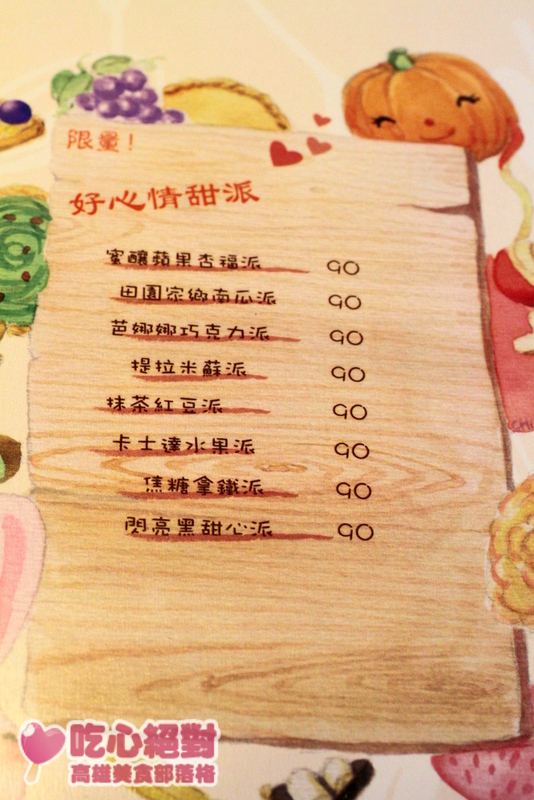 限量!
好心情甜派
蜜釀蘋果杏福派 90
田園家鄉南瓜派 90
芭娜娜巧克力派 90
提拉米蘇派 90
抹茶紅豆派 90
卡士達水果派 90
焦糖拿鐵派 90
閃亮黑甜心派 90
吃心絕對
高雄美食部落格